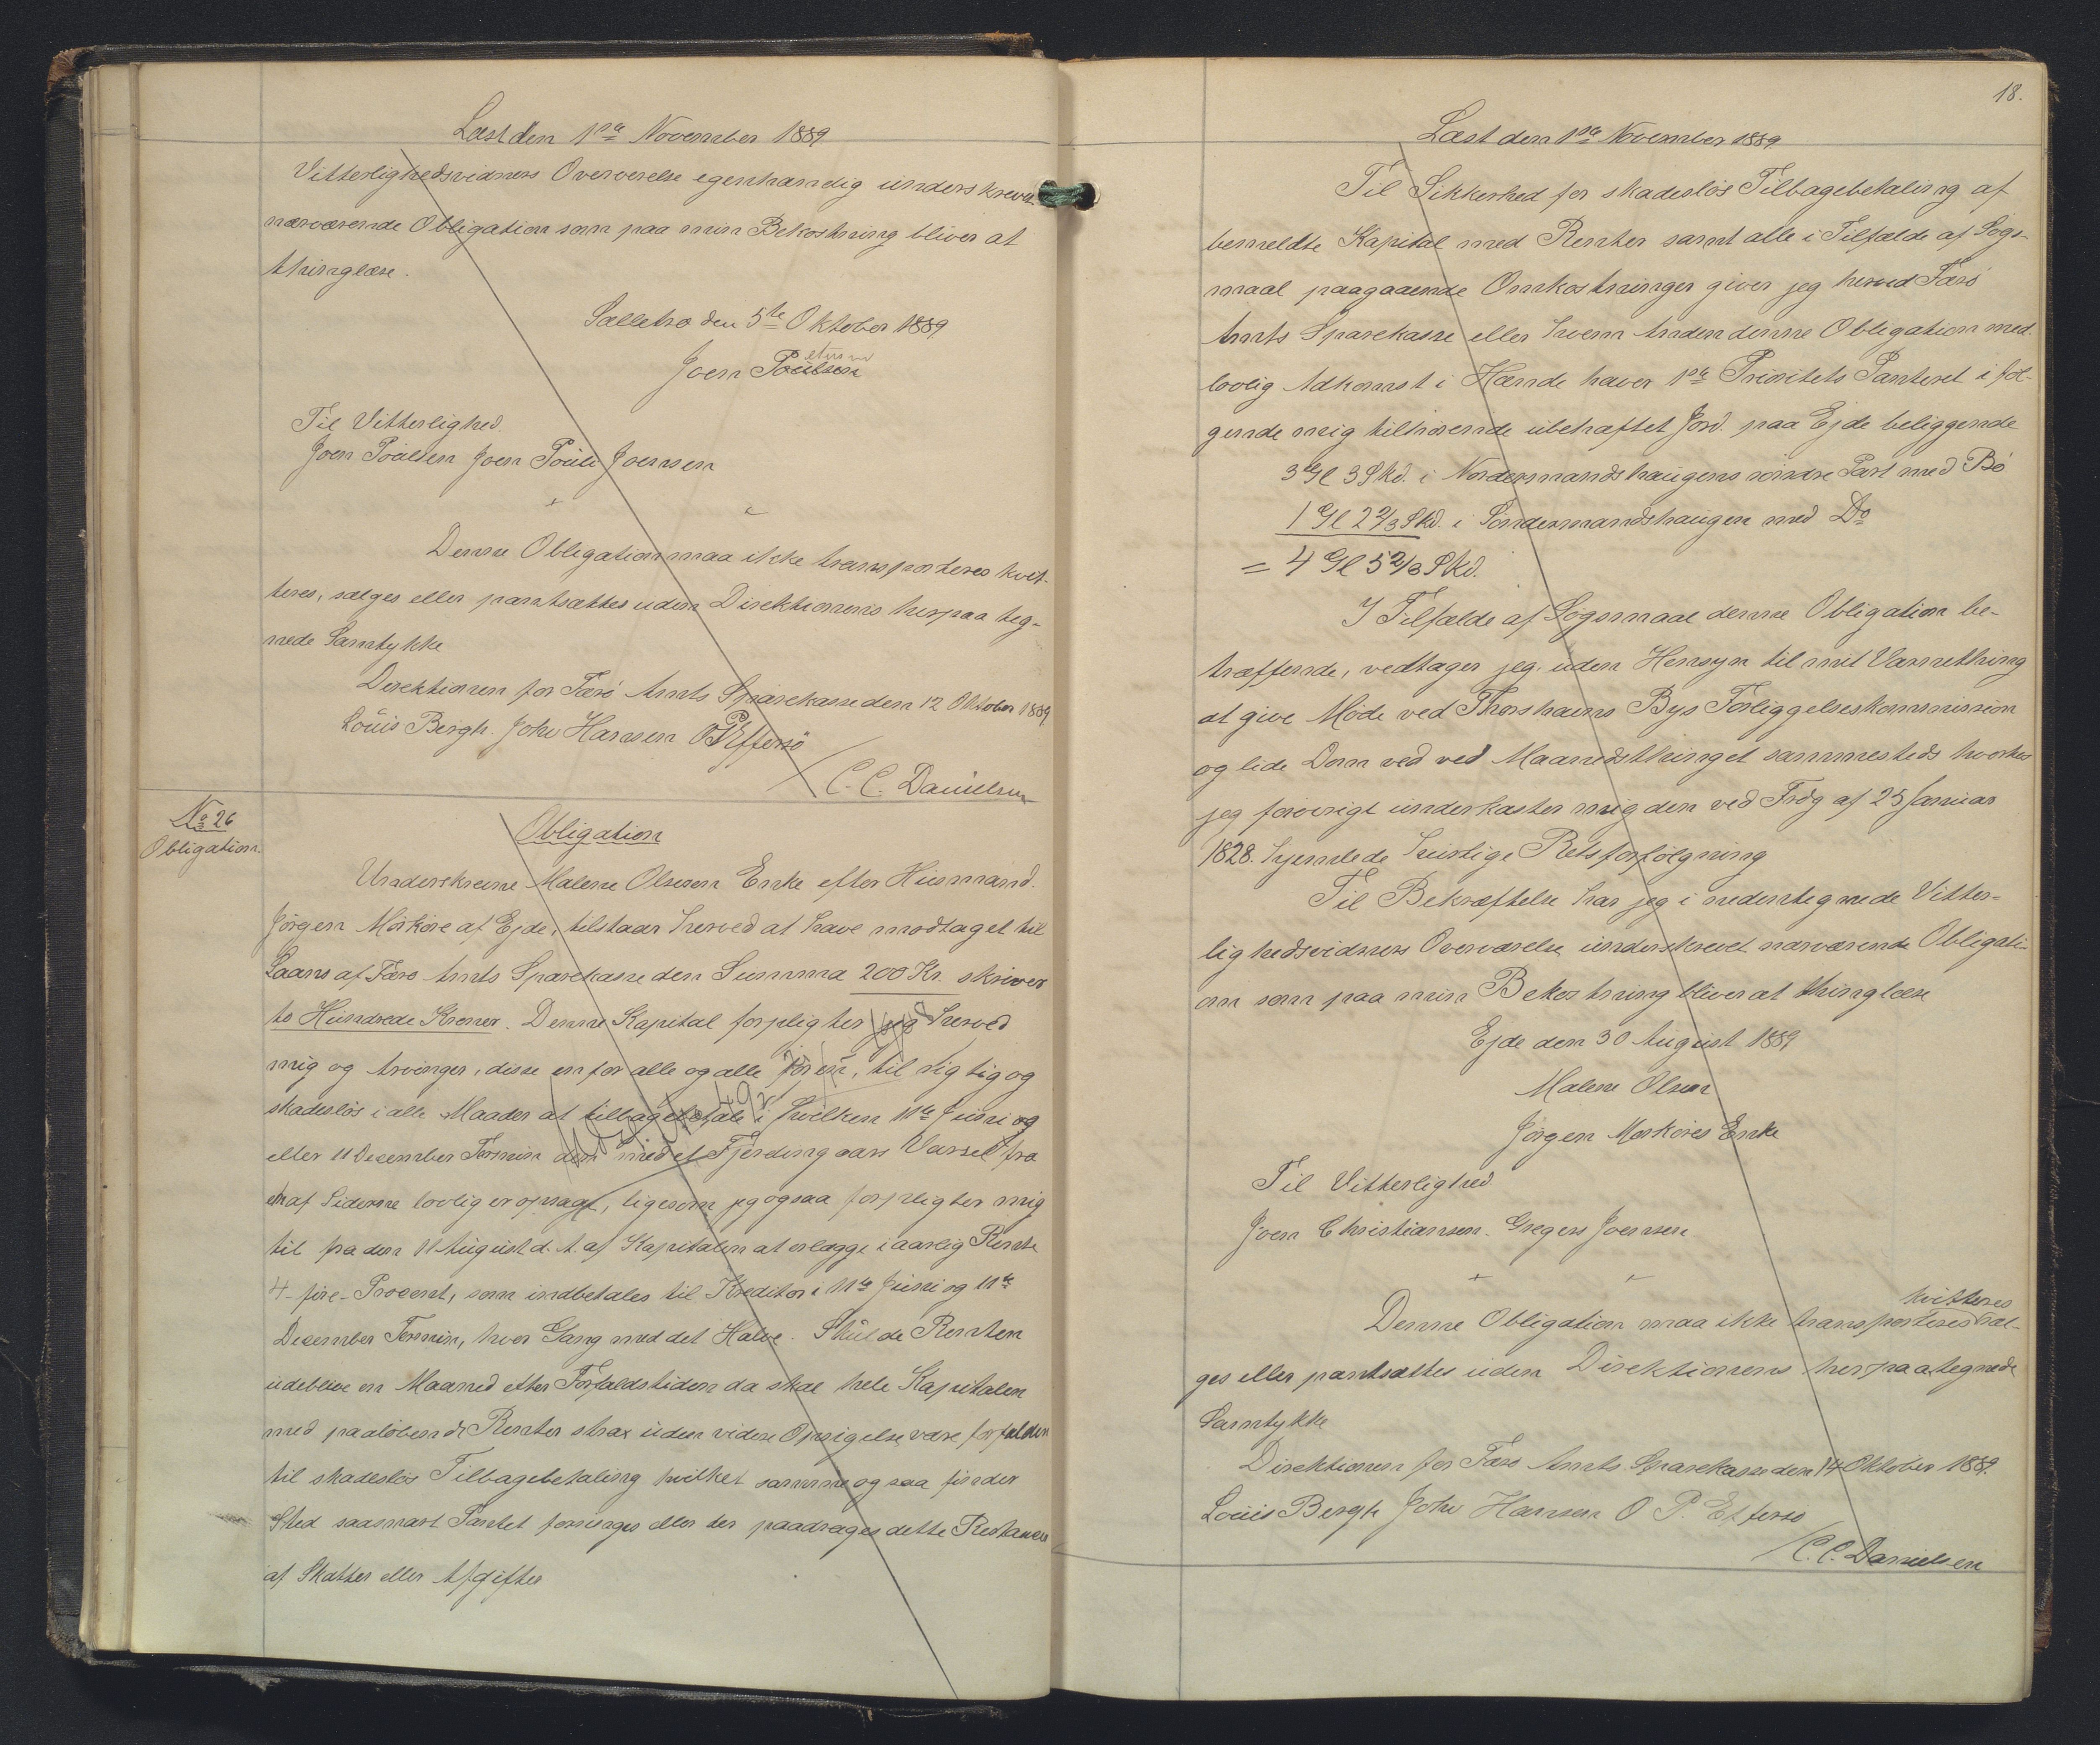 Læst den 1ste November 1889
Vitterlighedsvidners Overværelse egenhændig underskrevet
nærværende Obligation som paa min Bekostning bliver at
thinglæse.
Sælletræ den 5te Oktober 1889
Joen Poulsen
Til Vitterlighed.
Joen Poulsen Joen Pouli Joensen
Denne Obligation maa ikke transporteres kvit-
teres, sælges eller pantsættes uden Direktionens herpaa teg-
nede Samtykke
Direktionen for Færø Amts Sparekasse den 12 Oktober 1889
Louis Bergh. Johs Hansen OPEffersö
C. C. Danielsen
No 26
Obligation.
Obligation
Underskrevne Malene Olsen Enke efter Huusmand.
Jörgen Mörköre af Ejde, tilstaar herved at have modtaget til
Laans af Færø Amts Sparekasse den Summa 200 Kr. skriver
to Hundrede Kroner. Denne Kapital forpligter jeg herved
mig og Arvinger, disse en for alle og alle for en, til rigtig og
skadeslös i alle Maader at tilbagebetale i hvilken 11te Juni og
eller 11 December Termin den med et Fjerdingaars Varsel fra
en af Siderne lovlig er opsagt, ligesom jeg ogsaa forpligter mig
til fra den 11 August d. A. af Kapitalen at erlægge i aarlig Rente
4 - fire - Procent, som indbetales til Kreditor i 11te Juni og 11te
December Termin, hver Gang med det Halve. Skulde Renten
udeblive en Maaned efter Forfaldstiden da skal hele Kapitalen
med paalöbende Renter strax uden videre Opsigelse være forfalden
til skadeslös Tilbagebetaling hvilket samme ogsaa finder
Sted saasnart Pantet forringes eller der paadrages dette Restancer
af Skatter eller Afgifter
18.
Læst den 1ste November 1889
Til Sikkerhed for skadeslös Tilbagebetaling af
bemeldte Kapital med Renter samt alle i Tilfælde af Sögs-
maal paagaaende Omkostninger giver jeg herved Færö
Amts Sparekasse eller hvem Anden denne Obligation med
lovlig Adkomst i Hænde haver 1ste Prioritets Panteret i föl-
gende mig tilhörende ubehæftet Jord. paa Ejde beliggende
3 Gl 3 Skd. i Nordermandshaugens nordre Part med Bö
1 Gl 2 2/3 Skd. i Söndermandshaugen med Do
= 4 Gl 5 2/3 Skd.
I Tilfælde af Sögsmaal denne Obligation be-
træffende, vedtager jeg, uden Hensyn til mit Varnething
at give Möde ved Thorshavns Bys Forliggelseskommission
og lide Dom ved ved Maanedsthinget sammesteds hvorhos
jeg forövrigt underkaster mig den ved Frdg af 25 Januar
1828. hjemlede hurtige Retsforfölgning
Til Bekræftelse har jeg i nedentegnede Vitter-
lighedsvidners Overværelse underskrevet nærværende Obligati-
on som paa min Bekostning bliver at thinglæse
Ejde den 30 August 1889
Malene Olsen
Jörgen Morköres Enke
Til Vitterlighed
Joen Christiansen. Gregers Joensen
kvitteres
Denne Obligation maa ikke transporteres sæl-
ges eller pantsættes uden Direktionens herpaategnede
Samtykke
Direktionen for Færø Amts Sparekasse den 14 Oktober 1889.
Louis Bergh Johs Hansen O P Effersö
C. C. Danielsen